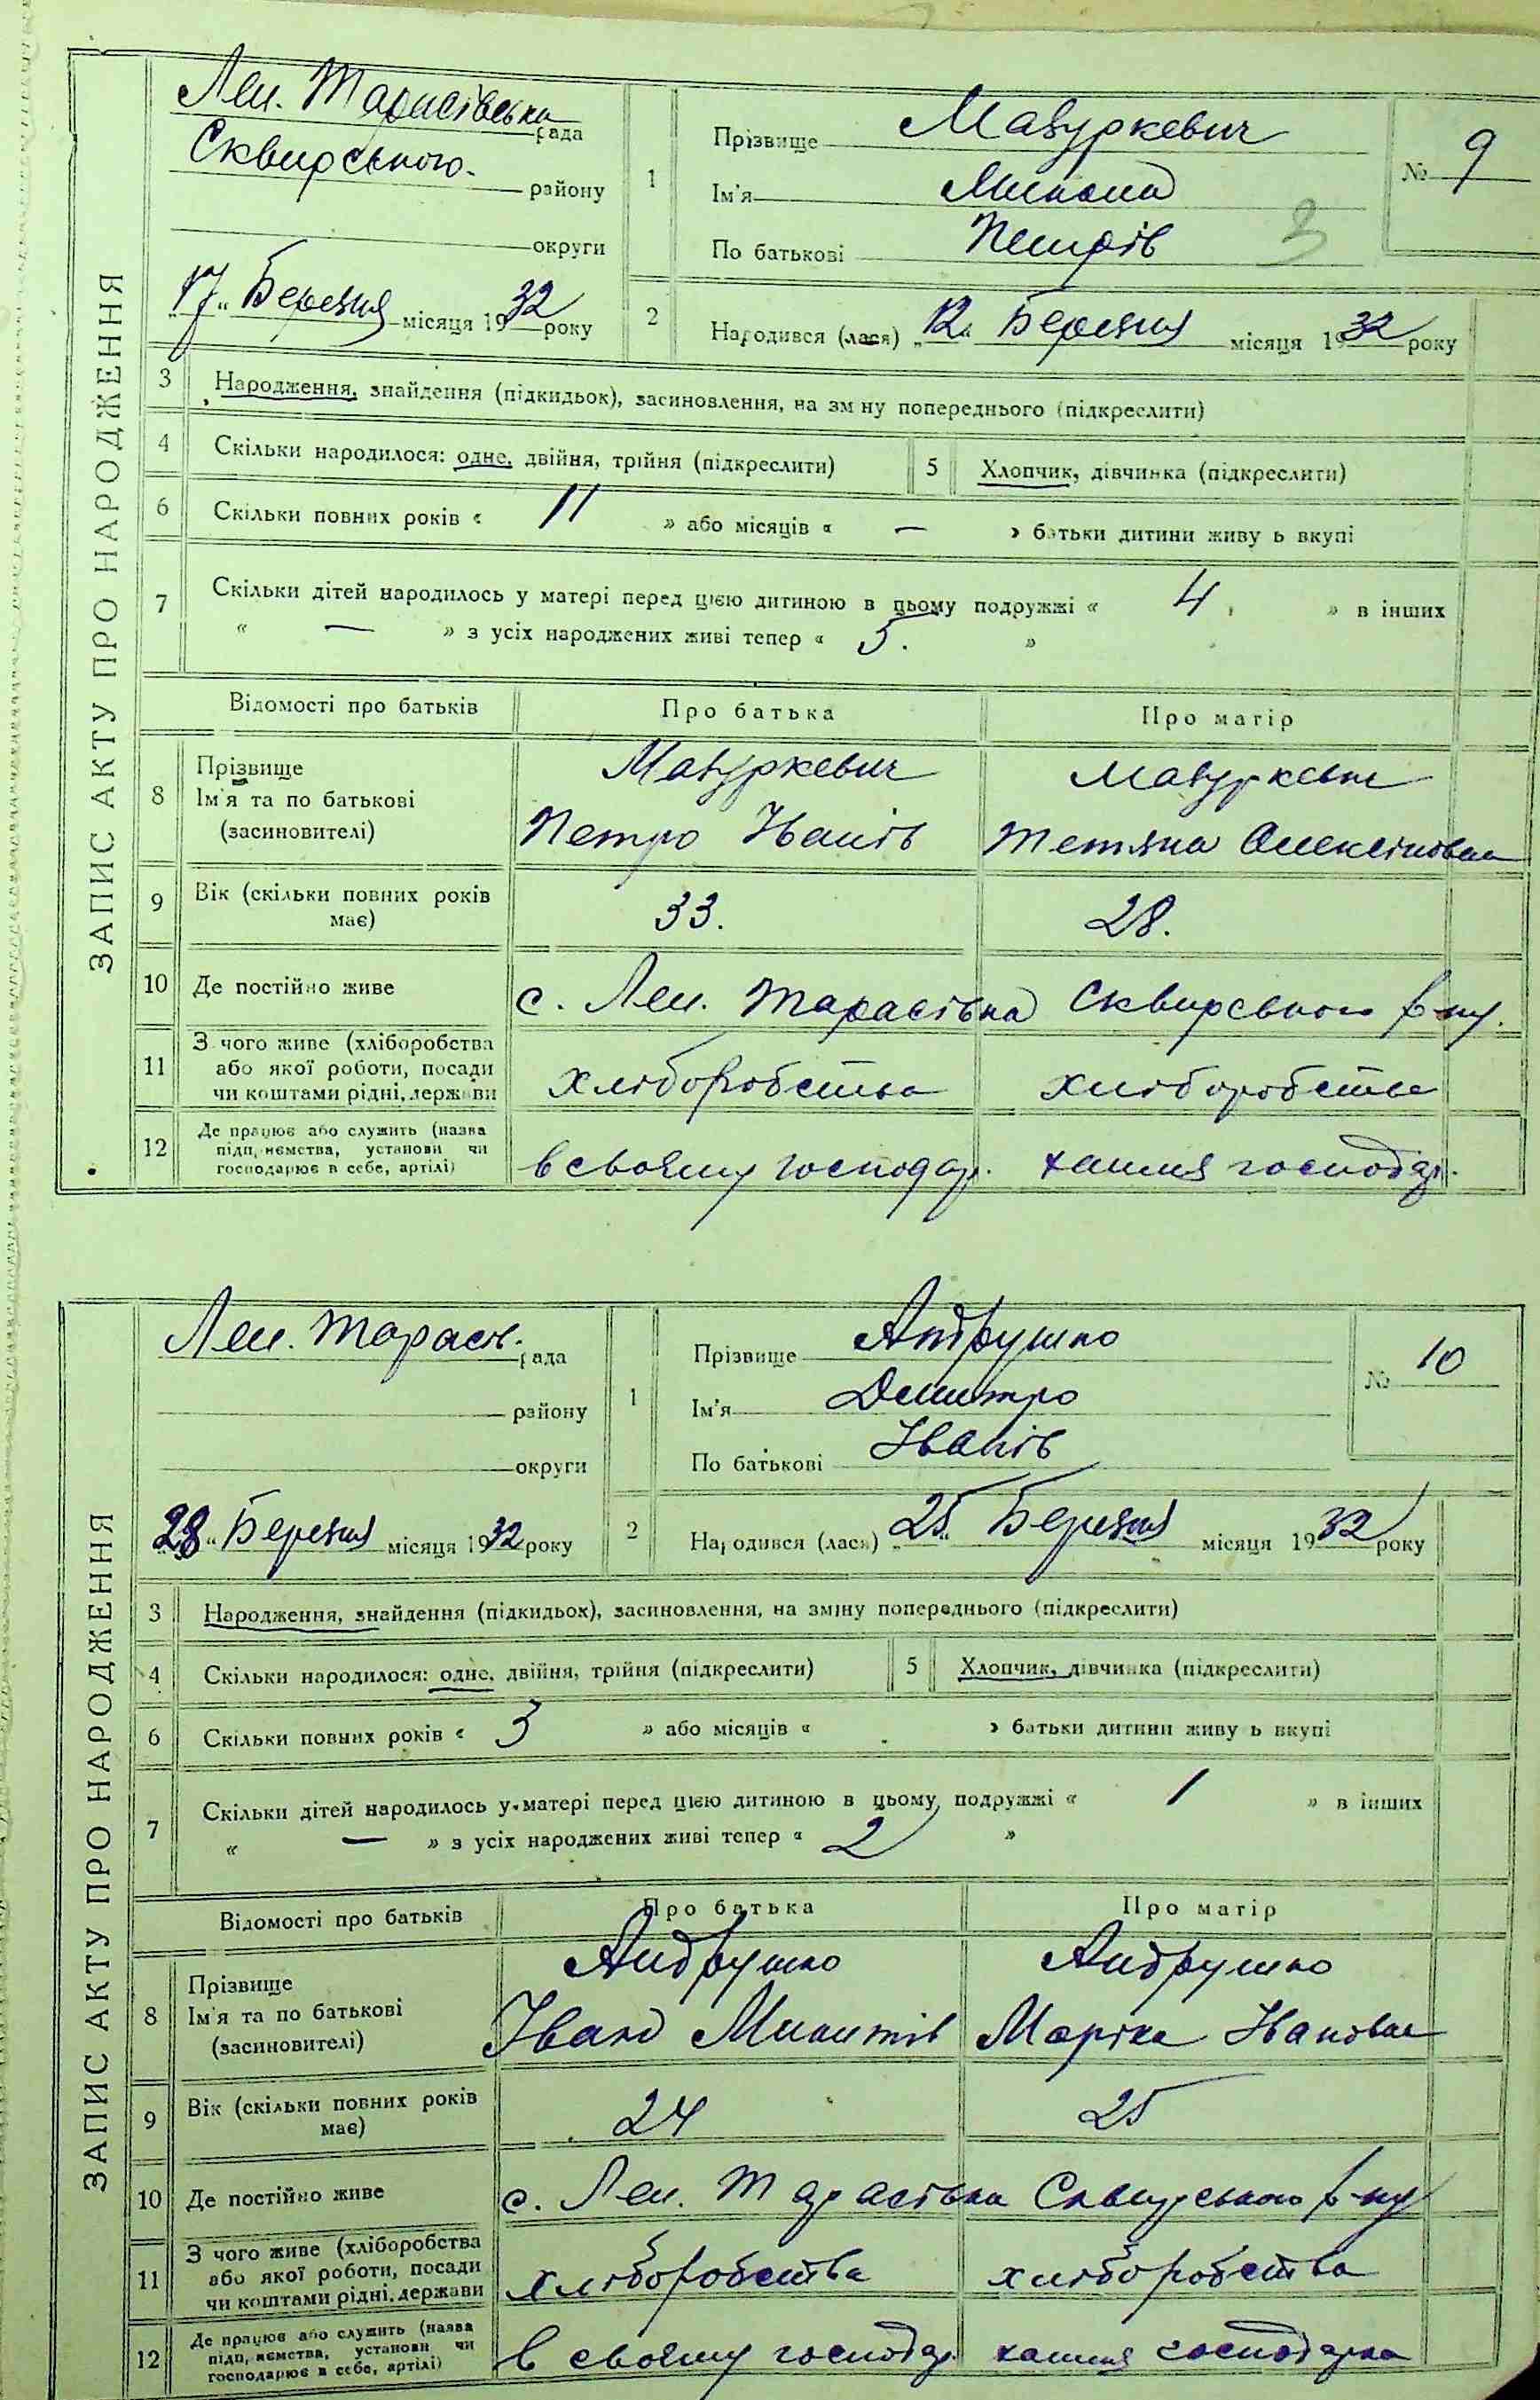 ЗАПИС АКТУ ПРО НАРОДЖЕННЯ
Лен. Тарасівська рада
Сквирського району
округи
"17" Березня місяця 1932 року
1
Прізвище Мазуркевич
Ім'я Микола
По батькові Петрів
3
№ 9
2
Народився (лася) "12" Березня місяця 1932 року
3 Народження, знайдення (підкидьок), засиновлення, на зміну попереднього (підкреслити)
4 Скільки народилося: одне, двійня, трійня (підкреслити)
5 Хлопчик, дівчинка (підкреслити)
6 Скільки повних років « 11 » або місяців « — » батьки дитини живуть вкупі
7 Скільки дітей народилось у матері перед цією дитиною в цьому подружжі « 4 » в інших
« — » з усіх народжених живі тепер « 5. »
Відомості про батьків Про батька Про матір
8 Прізвище Мазуркевич Мазуркевич
Ім'я та по батькові Петро Іванів Тетяна Олексіновна
(засиновителі)
9 Вік (скільки повних років має) 33. 28.
10 Де постійно живе с. Лен. Тарасівка Сквирського р-ну.
11 З чого живе (хліборобства або якої роботи, посади чи коштами рідні, держави хліборобства хліборобства
12 Де працює або служить (назва підприємства, установи чи господарює в себе, артілі) в своєму господар. хатня господар.
ЗАПИС АКТУ ПРО НАРОДЖЕННЯ
Лен. Тарасів. рада
району
округи
"28" Березня місяця 1932 року
1
Прізвище Андрушко
Ім'я Демитро
По батькові Іванів
№ 10
2
Народився (лася) "25" Березня місяця 1932 року
3 Народження, знайдення (підкидьок), засиновлення, на зміну попереднього (підкреслити)
4 Скільки народилося: одне, двійня, трійня (підкреслити)
5 Хлопчик, дівчинка (підкреслити)
6 Скільки повних років « 3 » або місяців « » батьки дитини живуть вкупі
7 Скільки дітей народилось у матері перед цією дитиною в цьому подружжі « 1 » в інших
« — » з усіх народжених живі тепер « 2 »
Відомості про батьків Про батька Про матір
8 Прізвище Андрушко Андрушко
Ім'я та по батькові Іван Микитів Маріка Івановна
(засиновителі)
9 Вік (скільки повних років має) 24 25
10 Де постійно живе с. Лен. Тарасівка Сквирського р-ну
11 З чого живе (хліборобства або якої роботи, посади чи коштами рідні, держави хліборобства хліборобства
12 Де працює або служить (назва підприємства, установи чи господарює в себе, артілі) в своєму господар. хатня господарка